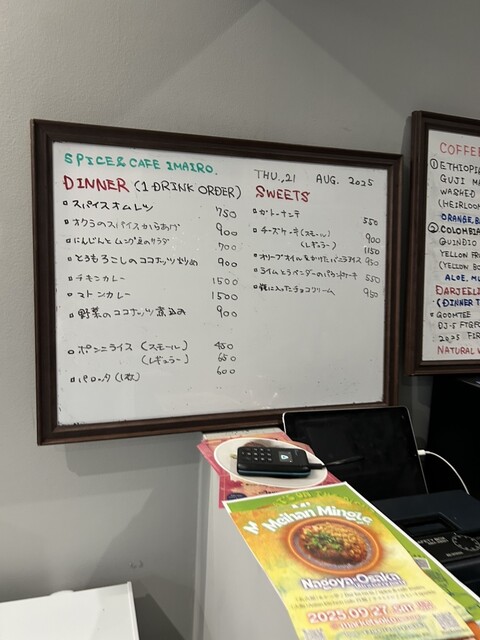 SPICE & CAFE IMAIRO.
THU., 21 AUG. 2025
DINNER (1 DRINK ORDER)
スパイスオムレツ 750
オクラのスパイスからあげ 900
にんじんとムング豆のサラダ 700
とうもろこしのココナッツ炒め 900
チキンカレー 1500
マトンカレー 1500
野菜のココナッツ煮込み 900
ポンニライス (スモール) 450
(レギュラー) 650
パロッタ (1枚) 600
SWEETS
ガトーナンテ 550
チーズケーキ (スモール) 900
(レギュラー) 1150
オリーブオイルをかけたバニラアイス 950
ライムとラベンダーのパウンドケーキ 550
瓶に入ったチョコクリーム 950
COFFEE
① ETHIOPIA
GUJI
WASHED
(HEIRLOOM
ORANGE,
② COLOMBIA
QUINDIO
YELLOW
(YELLOW
ALOE,
DARJEELI
(DINNER
GOOMTEE
DJ-5
2025
NATURAL
Meihan Mingle
Nagoya-Osaka
2025.09.27 SAT